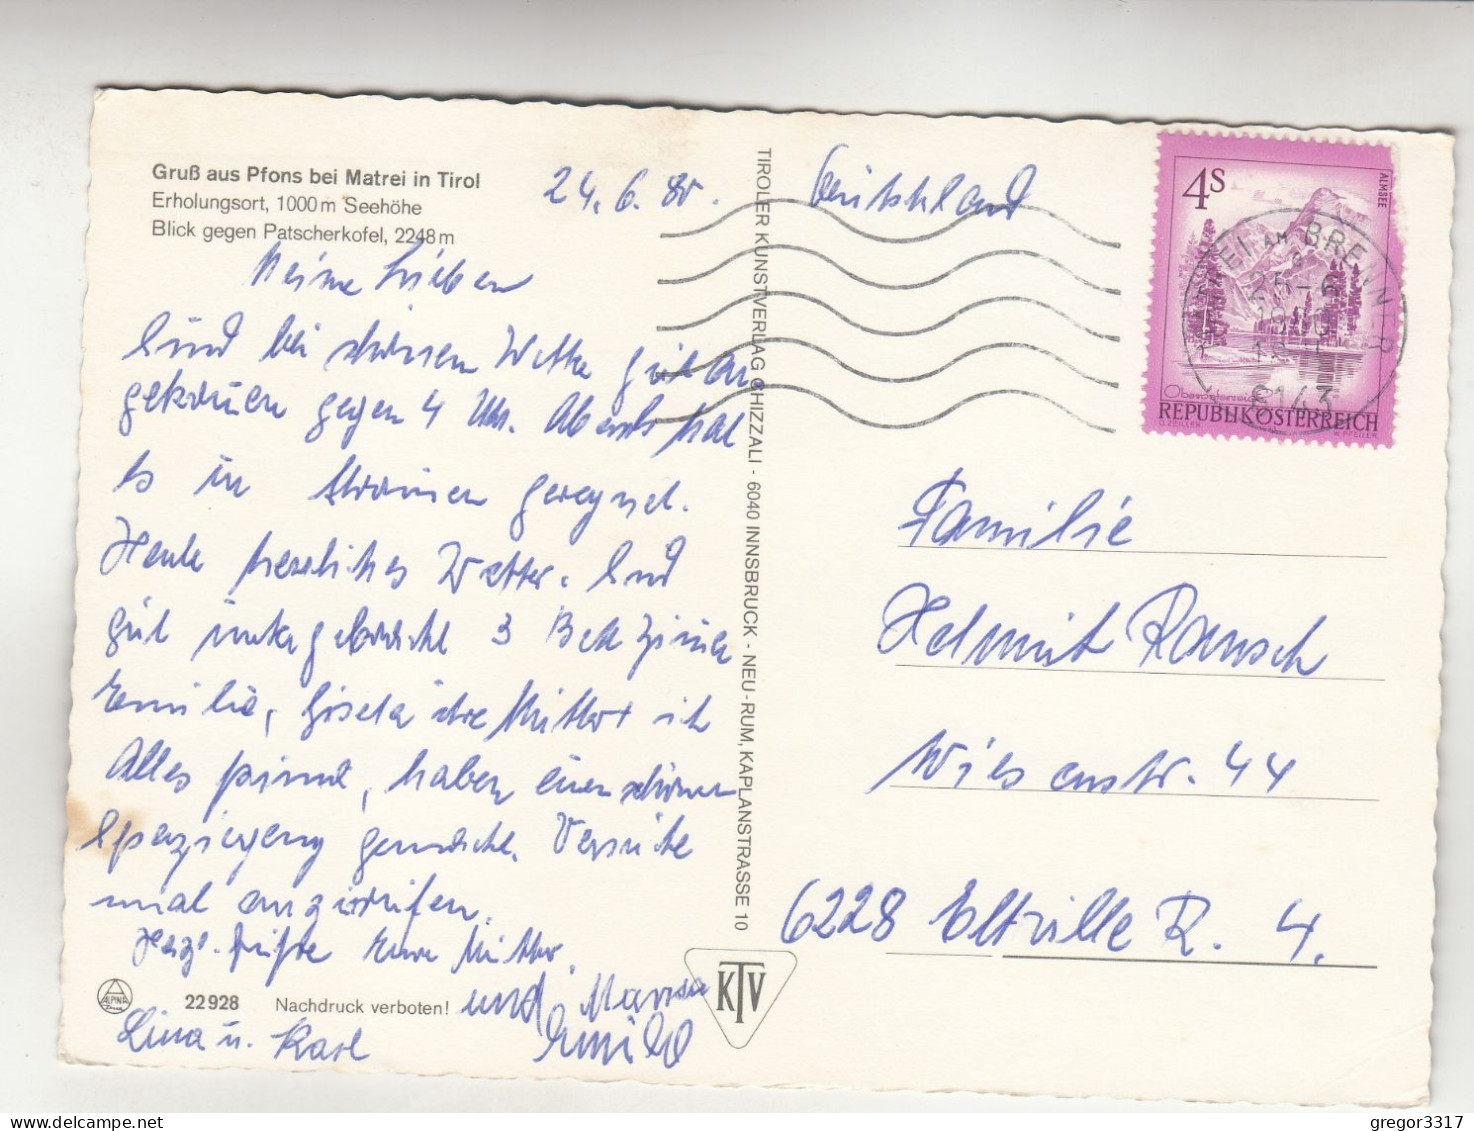 Gruß aus Pfons bei Matrei in Tirol
Erholungsort, 1000 m Seehöhe
Blick gegen Patscherkofel, 2248 m
24.6.80.
Meine Lieben
Sind bei schönem Wetter gut an
gekommen gegen 4 Uhr. Abends hat
es in Strömen geregnet.
Heute herrliches Wetter. Sind
gut untergebracht 3 Bett Zimmer
Emilie, Gisela ihre Mutter ich
Alles prima, haben einen schönen
Spaziergang gemacht. Versuche
mal anzurufen.
Herzl. Grüße Eure Mutter.
und
Emilie
Lina u. Karl
ALPINA
22 928
Nachdruck verboten!
TIROLER KUNSTVERLAG CHIZZALI - 6040 INNSBRUCK - NEU-RUM, KAPLANSTRASSE 10
KTV
Deutschland
4S
ALMSEE
Oberösterreich
REPUBLIK ÖSTERREICH
O. ZEILLER
W. PFEILER
AM BRENNER
25-6
6143
Familie
Helmut Rausch
Wiesenstr. 44
6228 Eltville R. 4.
gregor3317
delcampe.net